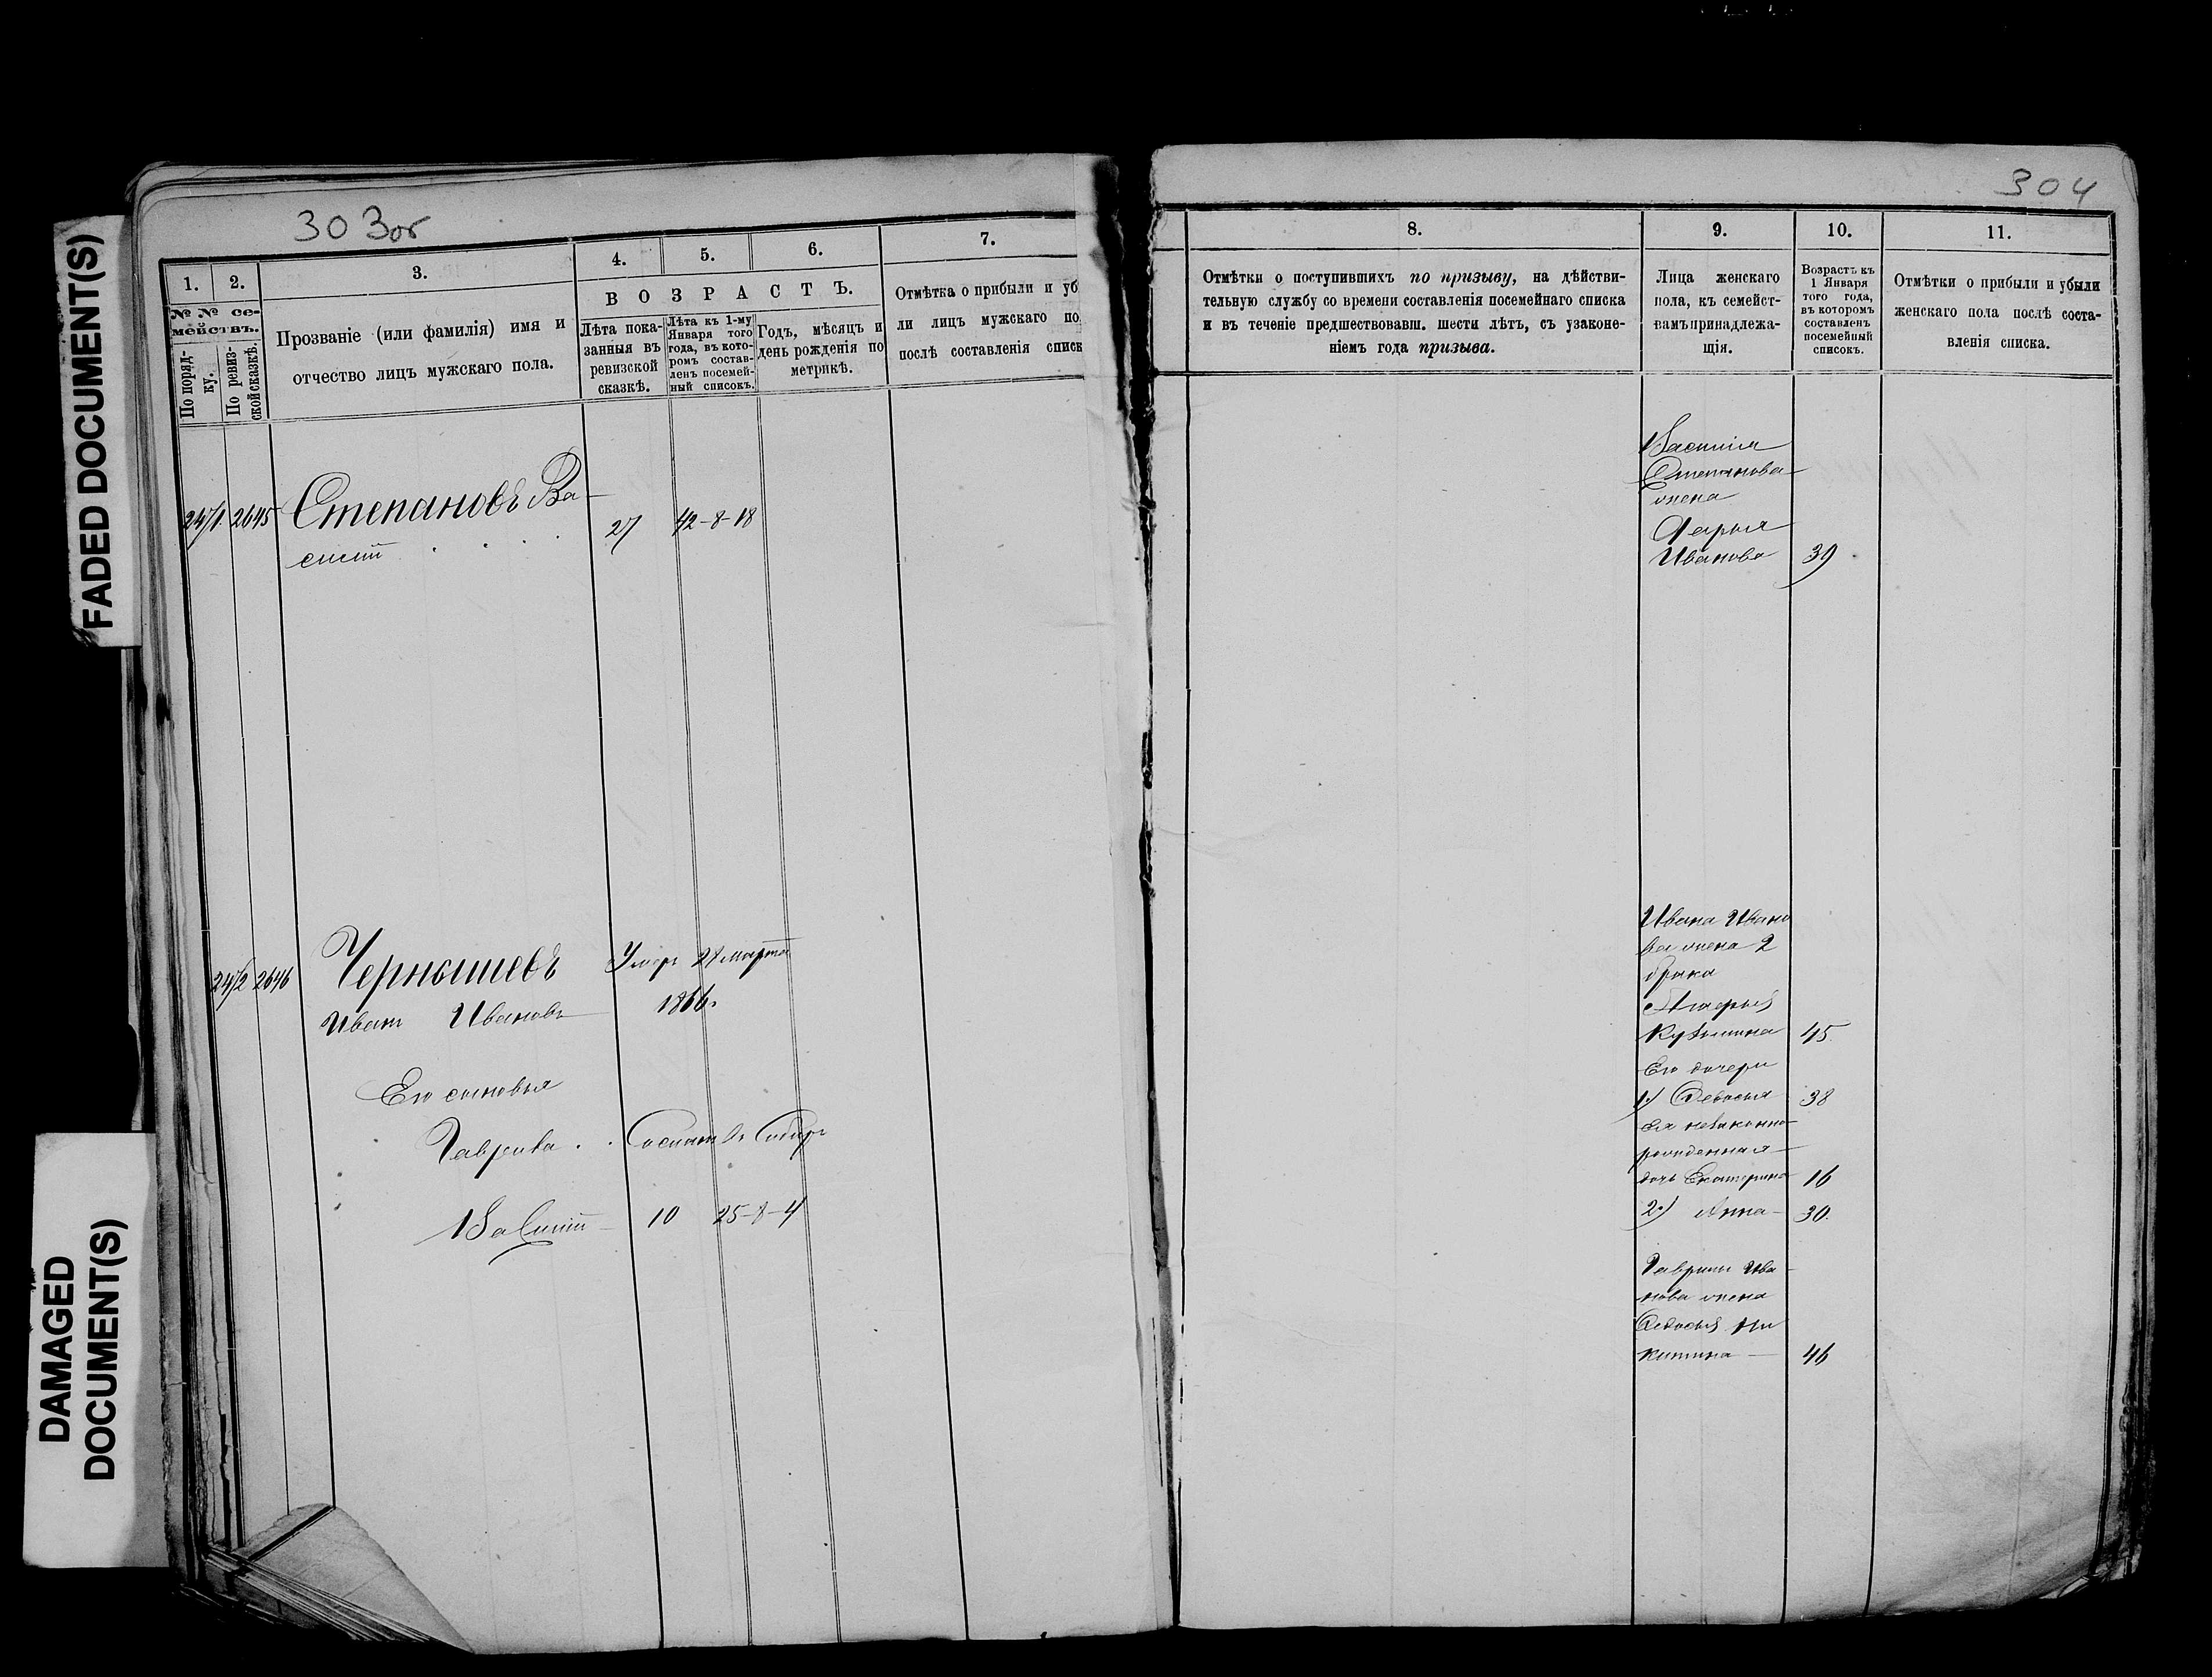 FADED DOCUMENT(S)
DAMAGED
DOCUMENT(S)
303об
1.
2.
3.
4.
5.
6.
7.
№ № се-
мействъ.
По поряд-
ку.
По ревиз-
ской сказкѣ.
Прозваніе (или фамилія) имя и
отчество лицъ мужскаго пола.
ВОЗРАСТЪ.
Лѣта пока-
занныя въ
ревизской
сказкѣ.
Лѣта къ 1-му
Января того
года, въ кото-
ромъ состав-
ленъ посемей-
ный списокъ.
Годъ, мѣсяцъ и
день рожденія по
метрикѣ.
Отмѣтка о прибыли и уб
ли лицъ мужскаго по
послѣ составленія списк
2471 2645 Степановъ Ва-
силій 27 42-8-18
2472 2646 Чернышевъ
Умеръ 28 марта
Иванъ Ивановъ 1866.
Его сыновья
Гаврила Сосланъ въ Сибирь
Василій 10 25-8-4
304
8.
9.
10.
11.
Отмѣтки о поступившихъ по призыву, на дѣйстви-
тельную службу со времени составленія посемейнаго списка
и въ теченіе предшествовавш. шести лѣтъ, съ узаконе-
ніемъ года призыва.
Лица женскаго
пола, къ семейст-
вамъ принадлежа-
щія.
Возрастъ къ
1 Января
того года,
въ которомъ
составленъ
посемейный
списокъ.
Отмѣтки о прибыли и убыли
женскаго пола послѣ соста-
вленія списка.
Василія
Степанова
жена
Дарья
Иванова 39
Ивана Ивано
ва жена 2
брака
Агафья
Кузьмина 45
Его дочери
1.) Ѳедосья 38
ея незаконно-
рожденная
дочь Екатерина 16
2.) Анна 30.
Гаврилы Ива
нова жена
Ѳедосья Ни
китина 46